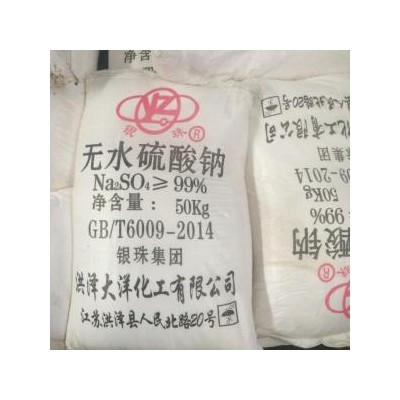 净含 50Kg
YZ
银 珠®
无水硫酸钠
Na₂SO₄≥99%
净含量： 50Kg
GB/T6009-2014
银珠集团
洪泽大洋化工有限公司
江苏洪泽县人民北路20号
县人民北路20号
化工有限公司
珠集团
09-2014
50Kg
≥99%
酸钠